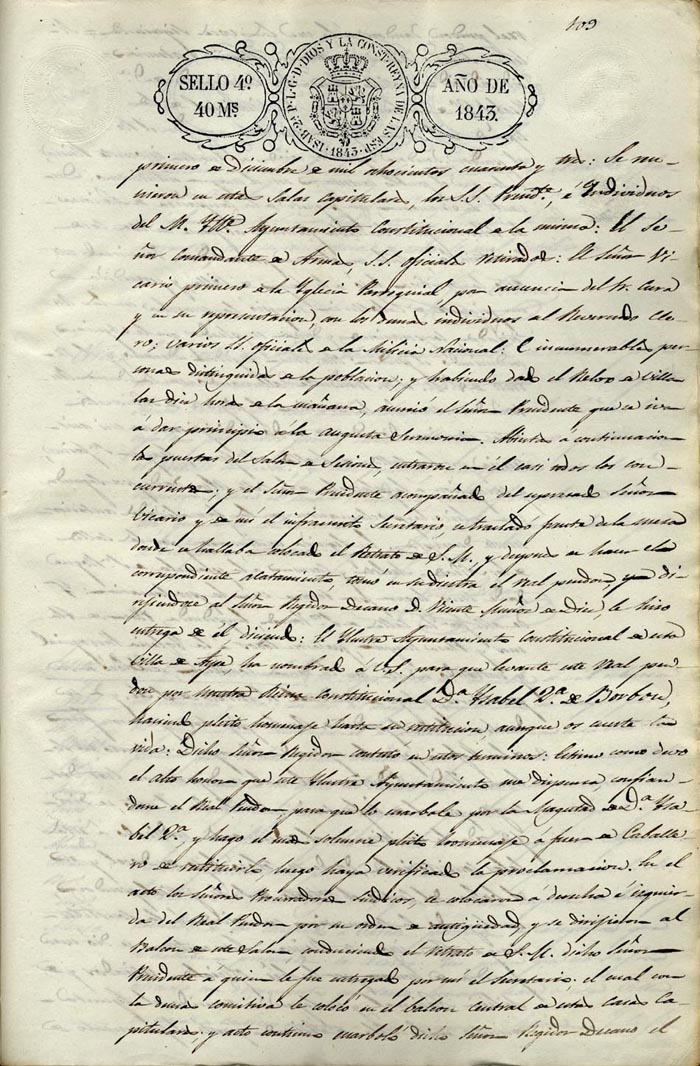 103
SELLO 4º.
40 Ms
ISAB. 2ª P. L. G. D. DIOS Y LA CONST. REYNA DE LAS ESP. 1843
AÑO DE
1843.
primero de Diciembre de mil ochocientos cuarenta y tres: Se reu-
nieron en estas Salas Capitulares, los S.S. Presidte., e Individuos
del M. Iltre. Ayuntamiento Constitucional de la misma: El Se-
ñor Comandante de Armas, S.S. oficiales retirados: El Señor Vi-
cario primero de la Yglecia Parroquial, por ausencia del Sr. Cura
y en su representacion, con los demas individuos del Reverendo Cle-
ro; varios SS. oficiales de la Milicia Nacional: E innumerables per-
sonas distinguidas de la poblacion; y habiendo dado el Relox de Villa
las diez horas de la mañana, anunció el Señor Presidente que se iva
á dar principio á la augusta Seremonia. Abiertas á continuacion
las puertas del Salon de Sesiones, entraron en él casi todos los con-
currentes: y el Señor Presidente acompañado del espresado Señor
Vicario y de mi el infrascrito Secretario, se trasladó frente de la mesa
donde se hallaba colocado el Retrato de S. M. y despues de hacer el
correspondiente acatamiento, tomó en su diestra el Real pendon, y di-
rijiendose al Señor Regidor Decano D. Vicente Muñoz de Dios, le hizo
entrega de él diciendo: El Ilustre Ayuntamiento Constitucional de esta
Villa de Aspe, ha nombrado á V.S. para que levante este Real pen-
don por nuestra Reina Constitucional Dª. Ysabel 2ª. de Borbon,
haciendo pleito homenage hasta su restitucion aunque os cueste la
vida: Dicho Señor Regidor contestó en estos terminos: Estimo como devo
el alto honor que este Ilustre Ayuntamiento me dispensa, confian-
dome el Real Pendon para que lo enarbole por la Magestad de Dª. Ysa-
bel 2ª. y hago el mas solemne pleito homenage a fuer de Caballe-
ro de restituirlo luego haya verificado la proclamacion. En el
acto los Señores Procuradores Sindicos, se colocaron á derecha é izquier-
da del Real Pendon por su orden de antigüedad, y se dirijieron al
Balcon de este Salon conduciendo el Retrato de S. M. dicho Señor
Presidente a quien le fue entregado por mi el Secretario. el cual con
la demas comitiva le colocó en el balcon central de estas Casas Ca-
pitulares; y acto continuo enarboló dicho Señor Regidor Decano el